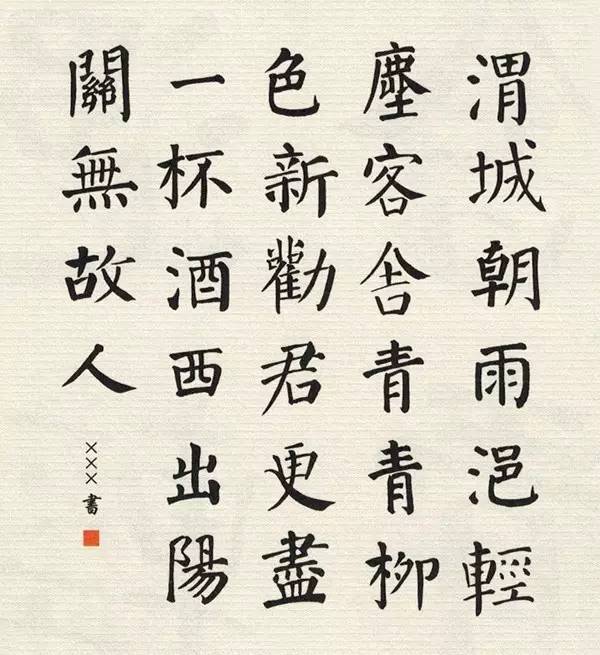 渭城朝雨浥輕
塵客舍青青柳
色新勸君更盡
一杯酒西出陽
關無故人
×××書